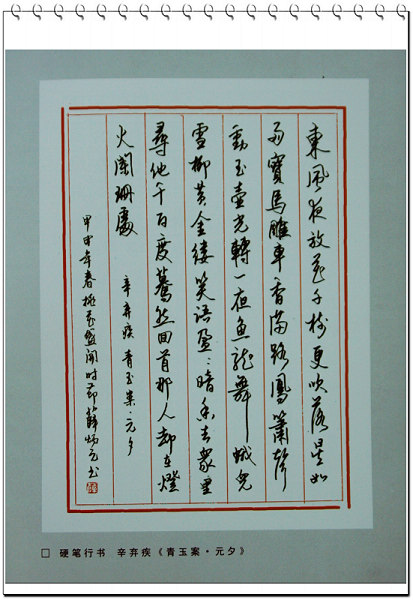 東風夜放花千樹更吹落星如
雨寶馬雕車香滿路鳳簫聲
動玉壺光轉一夜魚龍舞蛾兒
雪柳黄金縷笑語盈盈暗香去衆里
尋他千百度驀然回首那人却在燈
火闌珊處
辛弃疾 青玉案·元夕
甲申年春桃花盛開时節薛炳元书
□ 硬笔行书 辛弃疾《青玉案·元夕》